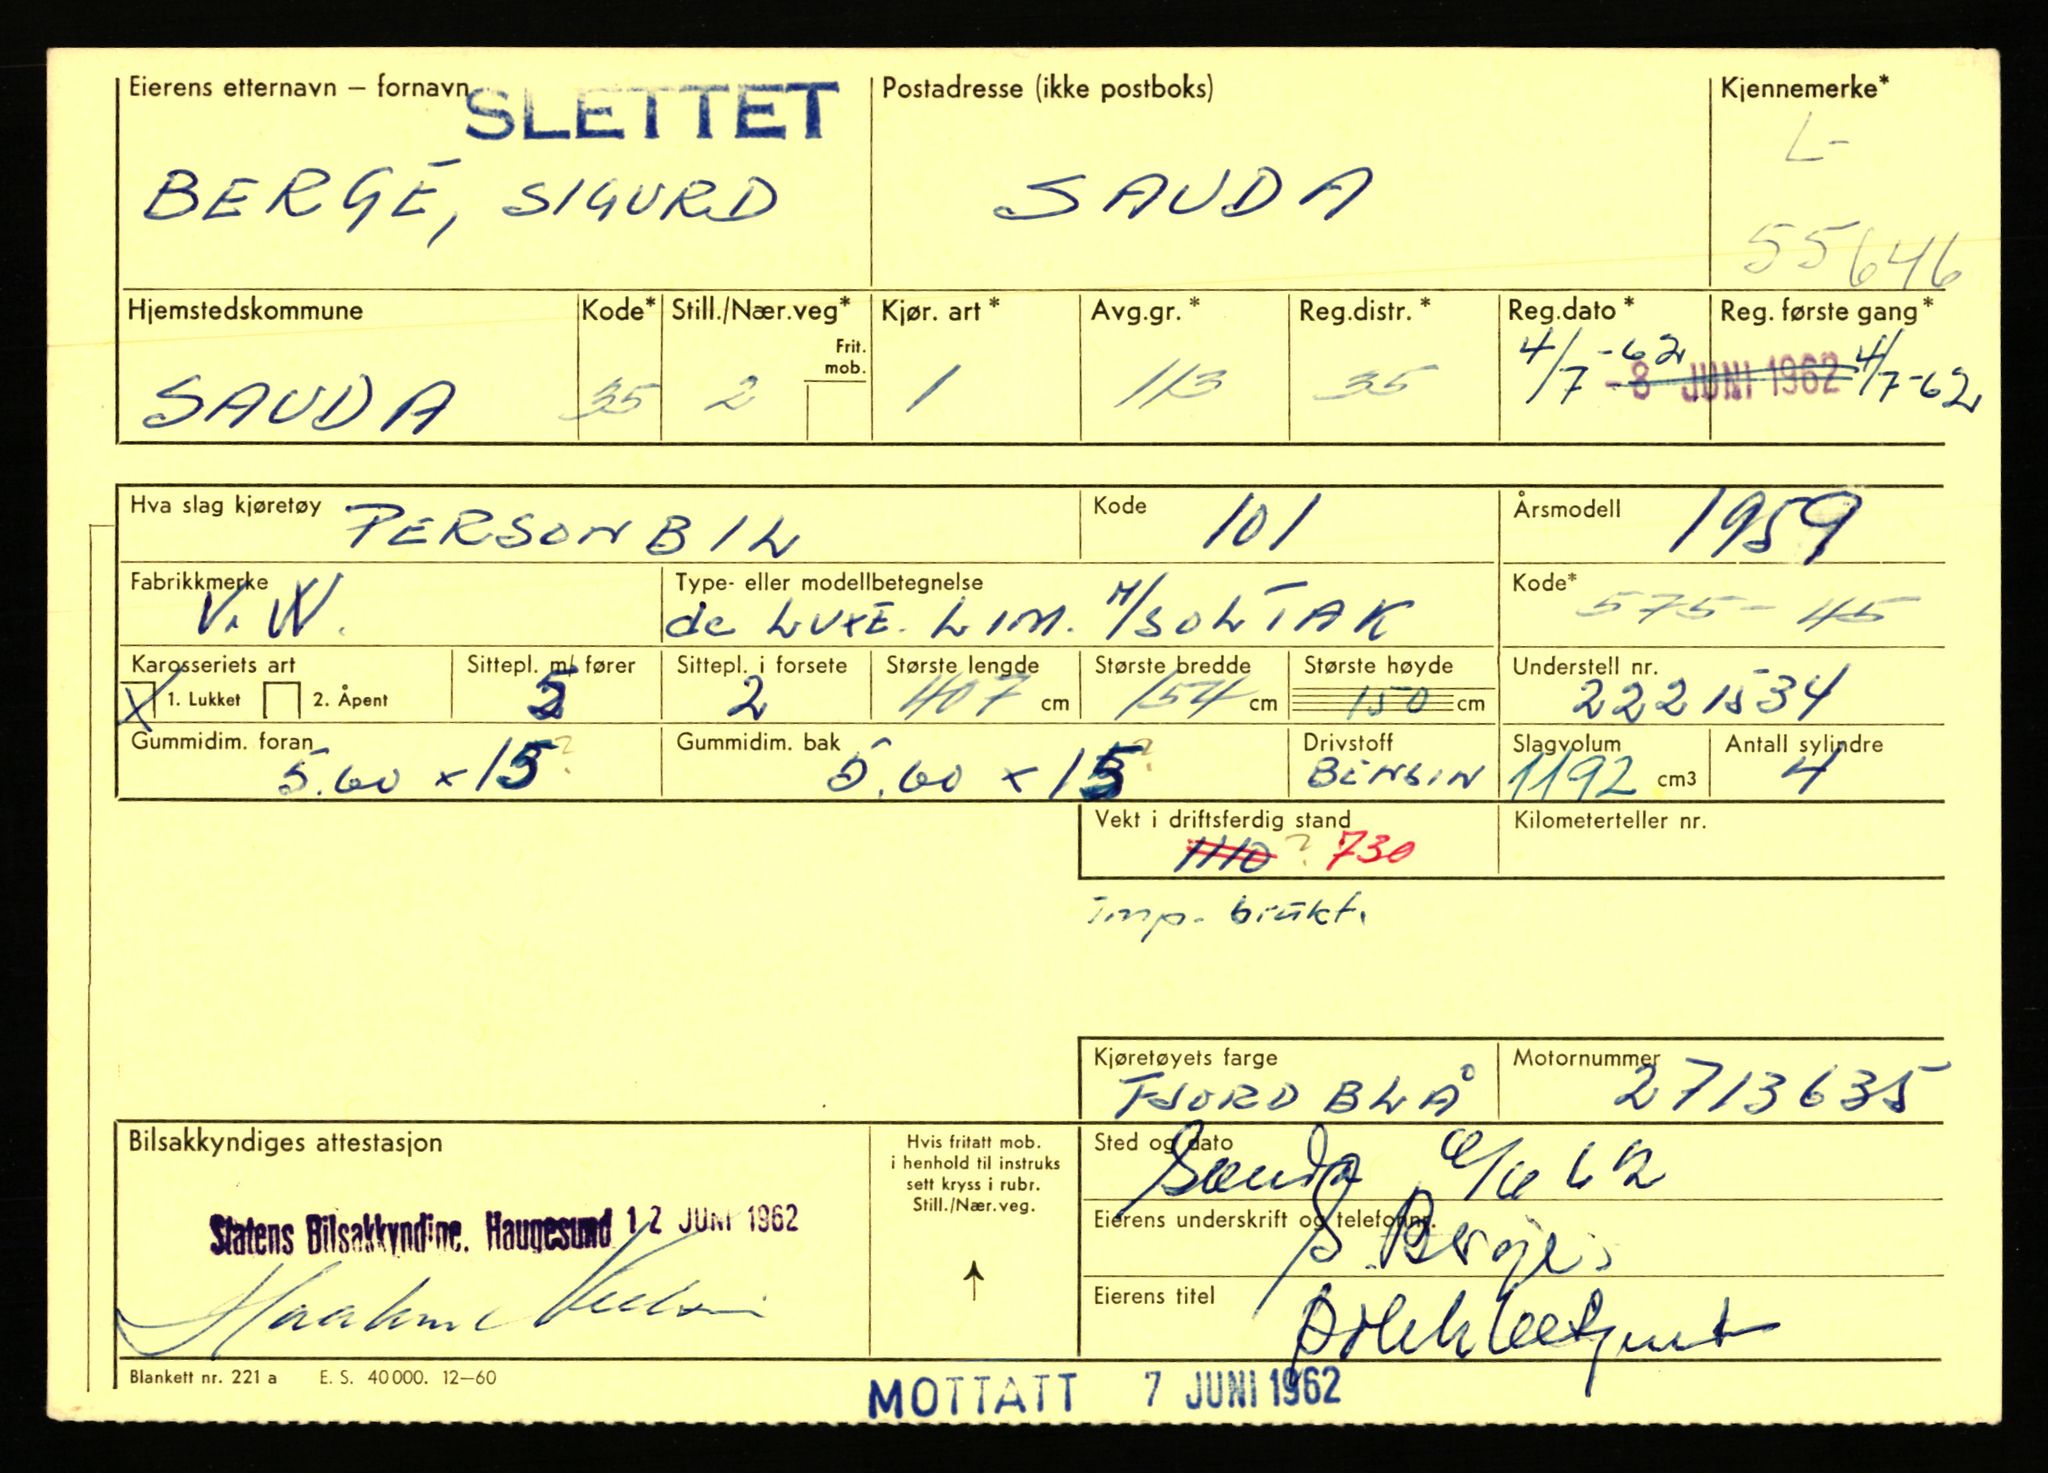 Eierens etternavn – fornavn SLETTET Postadresse (ikke postboks) Kjennemerke*
BERGE, SIGURD SAUDA L-
55646
Hjemstedskommune Kode* Still./Nær.veg* Kjør. art * Avg.gr. * Reg.distr. * Reg.dato * Reg. første gang *
Frit. mob. 4/7 -62 -8 JUNI 1962 4/7-62
SAUDA 35 2 1 113 35
Hva slag kjøretøy PERSONBIL Kode 101 Årsmodell 1959
Fabrikkmerke Type- eller modellbetegnelse Kode*
V.W. de LUXE. LIM. M/SOLTAK 575-45
Karosseriets art Sittepl. m/ fører Sittepl. i forsete Største lengde Største bredde Største høyde Understell nr.
X 1. Lukket 2. Åpent 5 2 407 cm 154 cm 150 cm 2221534
Gummidim. foran Gummidim. bak Drivstoff Slagvolum Antall sylindre
5.60 x 15 ? 5.60 x 15 ? BENSIN 1192 cm3 4
Vekt i driftsferdig stand Kilometerteller nr.
1110 ? 730
imp. brukt.
Kjøretøyets farge Motornummer
FJORD BLÅ 2713635
Bilsakkyndiges attestasjon
Hvis fritatt mob.
i henhold til instruks
sett kryss i rubr.
Still./Nær.veg.
Sted og dato Sauda 62
Statens Bilsakkyndige. Haugesund 12 JUNI 1962
Eierens underskrift og telefonnr.
S. Berge.
Eierens titel
Blankett nr. 221 a E. S. 40 000. 12–60
MOTTATT 7 JUNI 1962